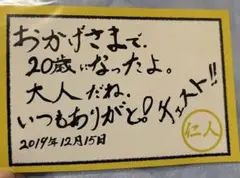 おかげさまで、
20歳になったよ。
大人だね。
いつもありがと！チェスト!!
2019年12月15日
仁人